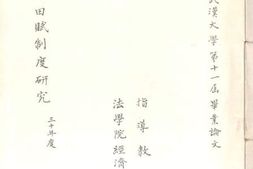 武漢大學第十一屆畢業論文
指導教
法學院經濟
田賦制度研究
三十年度